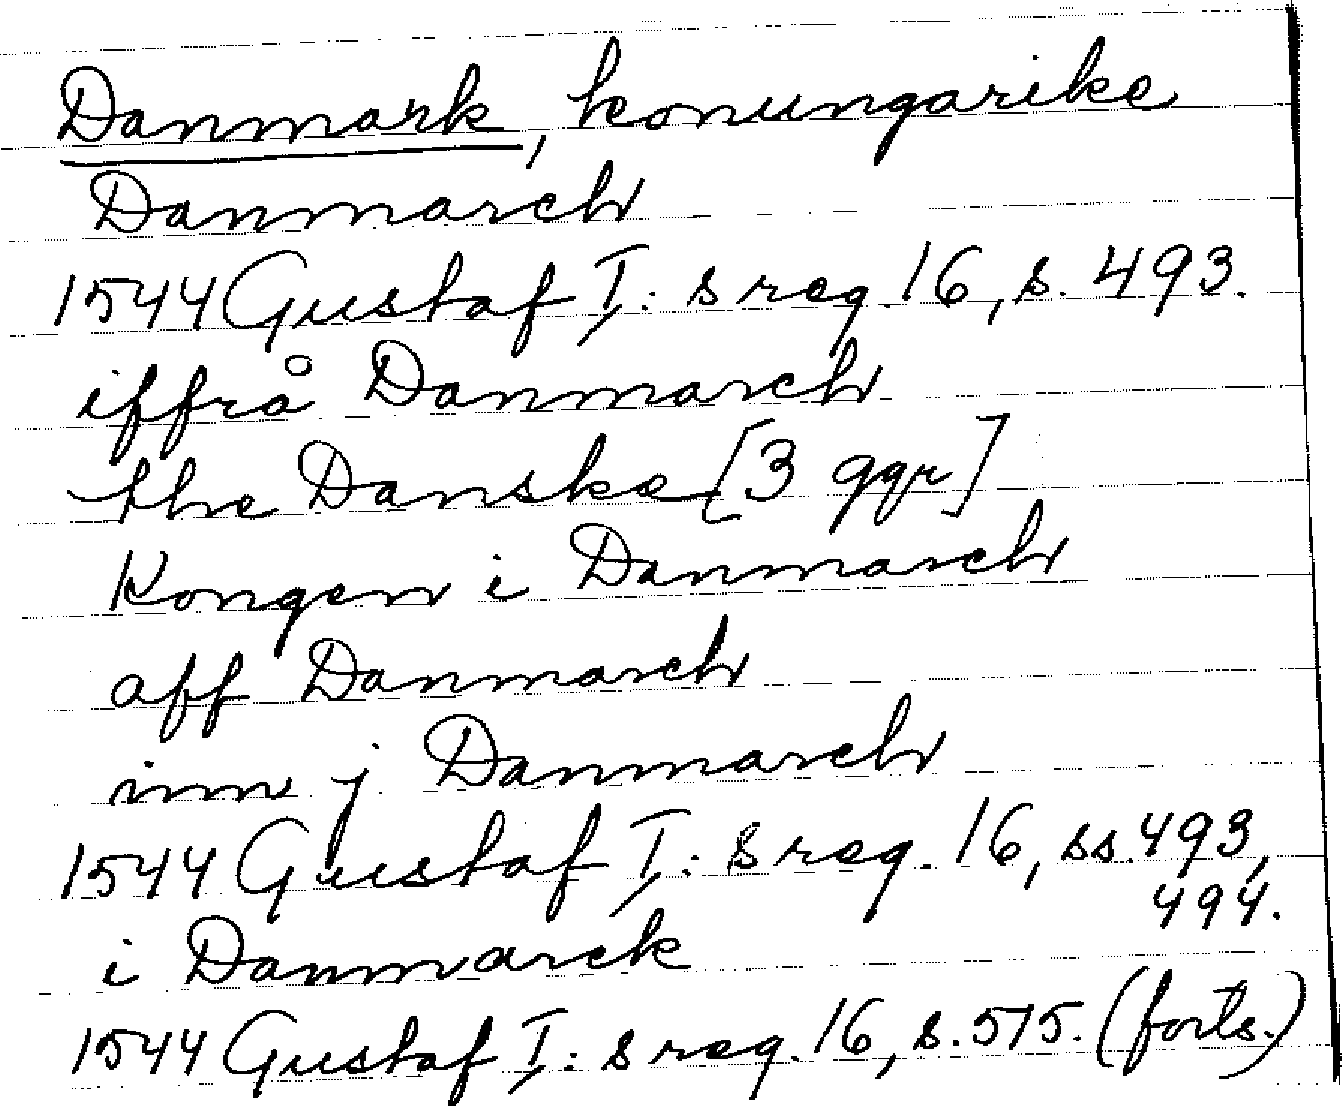 Danmark, konungarike
Danmarch
1544 Gustaf I: s reg. 16, s. 493.
iffrå Danmarch
the Danske [3 ggr]
Kongen i Danmarch
aff Danmarch
inn j Danmarch
1544 Gustaf I: s reg. 16, ss. 493,
494.
i Danmarck
1544 Gustaf I: s reg. 16, s. 515. (forts.)